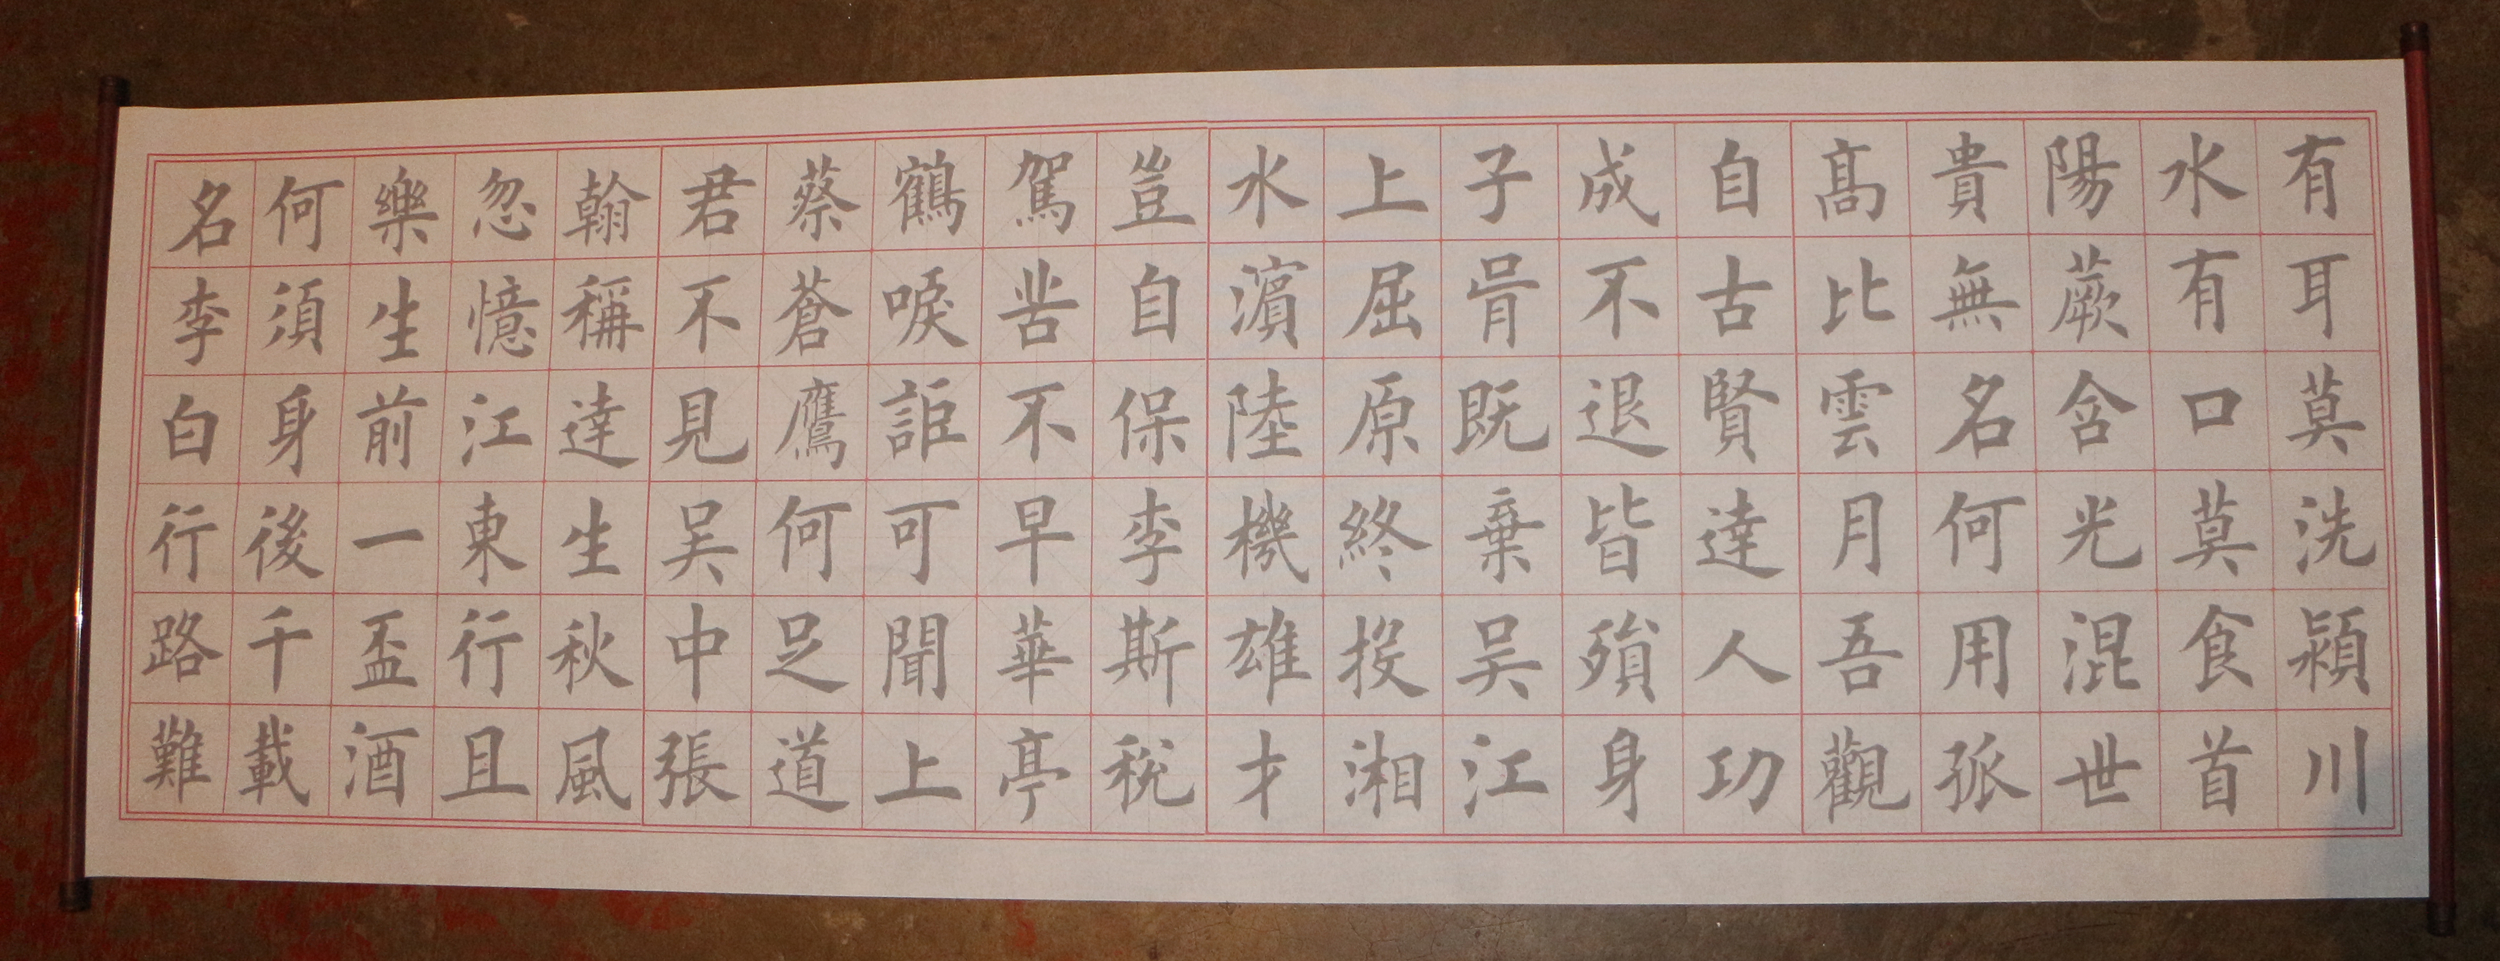 有耳莫洗潁川
水有口莫食首
陽蕨含光混世
貴無名何用孤
髙比雲月吾觀
自古賢達人功
成不退皆殞身
子胥既棄吳江
上屈原終投湘
水濱陸機雄才
豈自保李斯稅
駕苦不早華亭
鶴唳詎可聞上
蔡蒼鷹何足道
君不見吳中張
翰稱達生秋風
忽憶江東行且
樂生前一盃酒
何須身後千載
名李白行路難